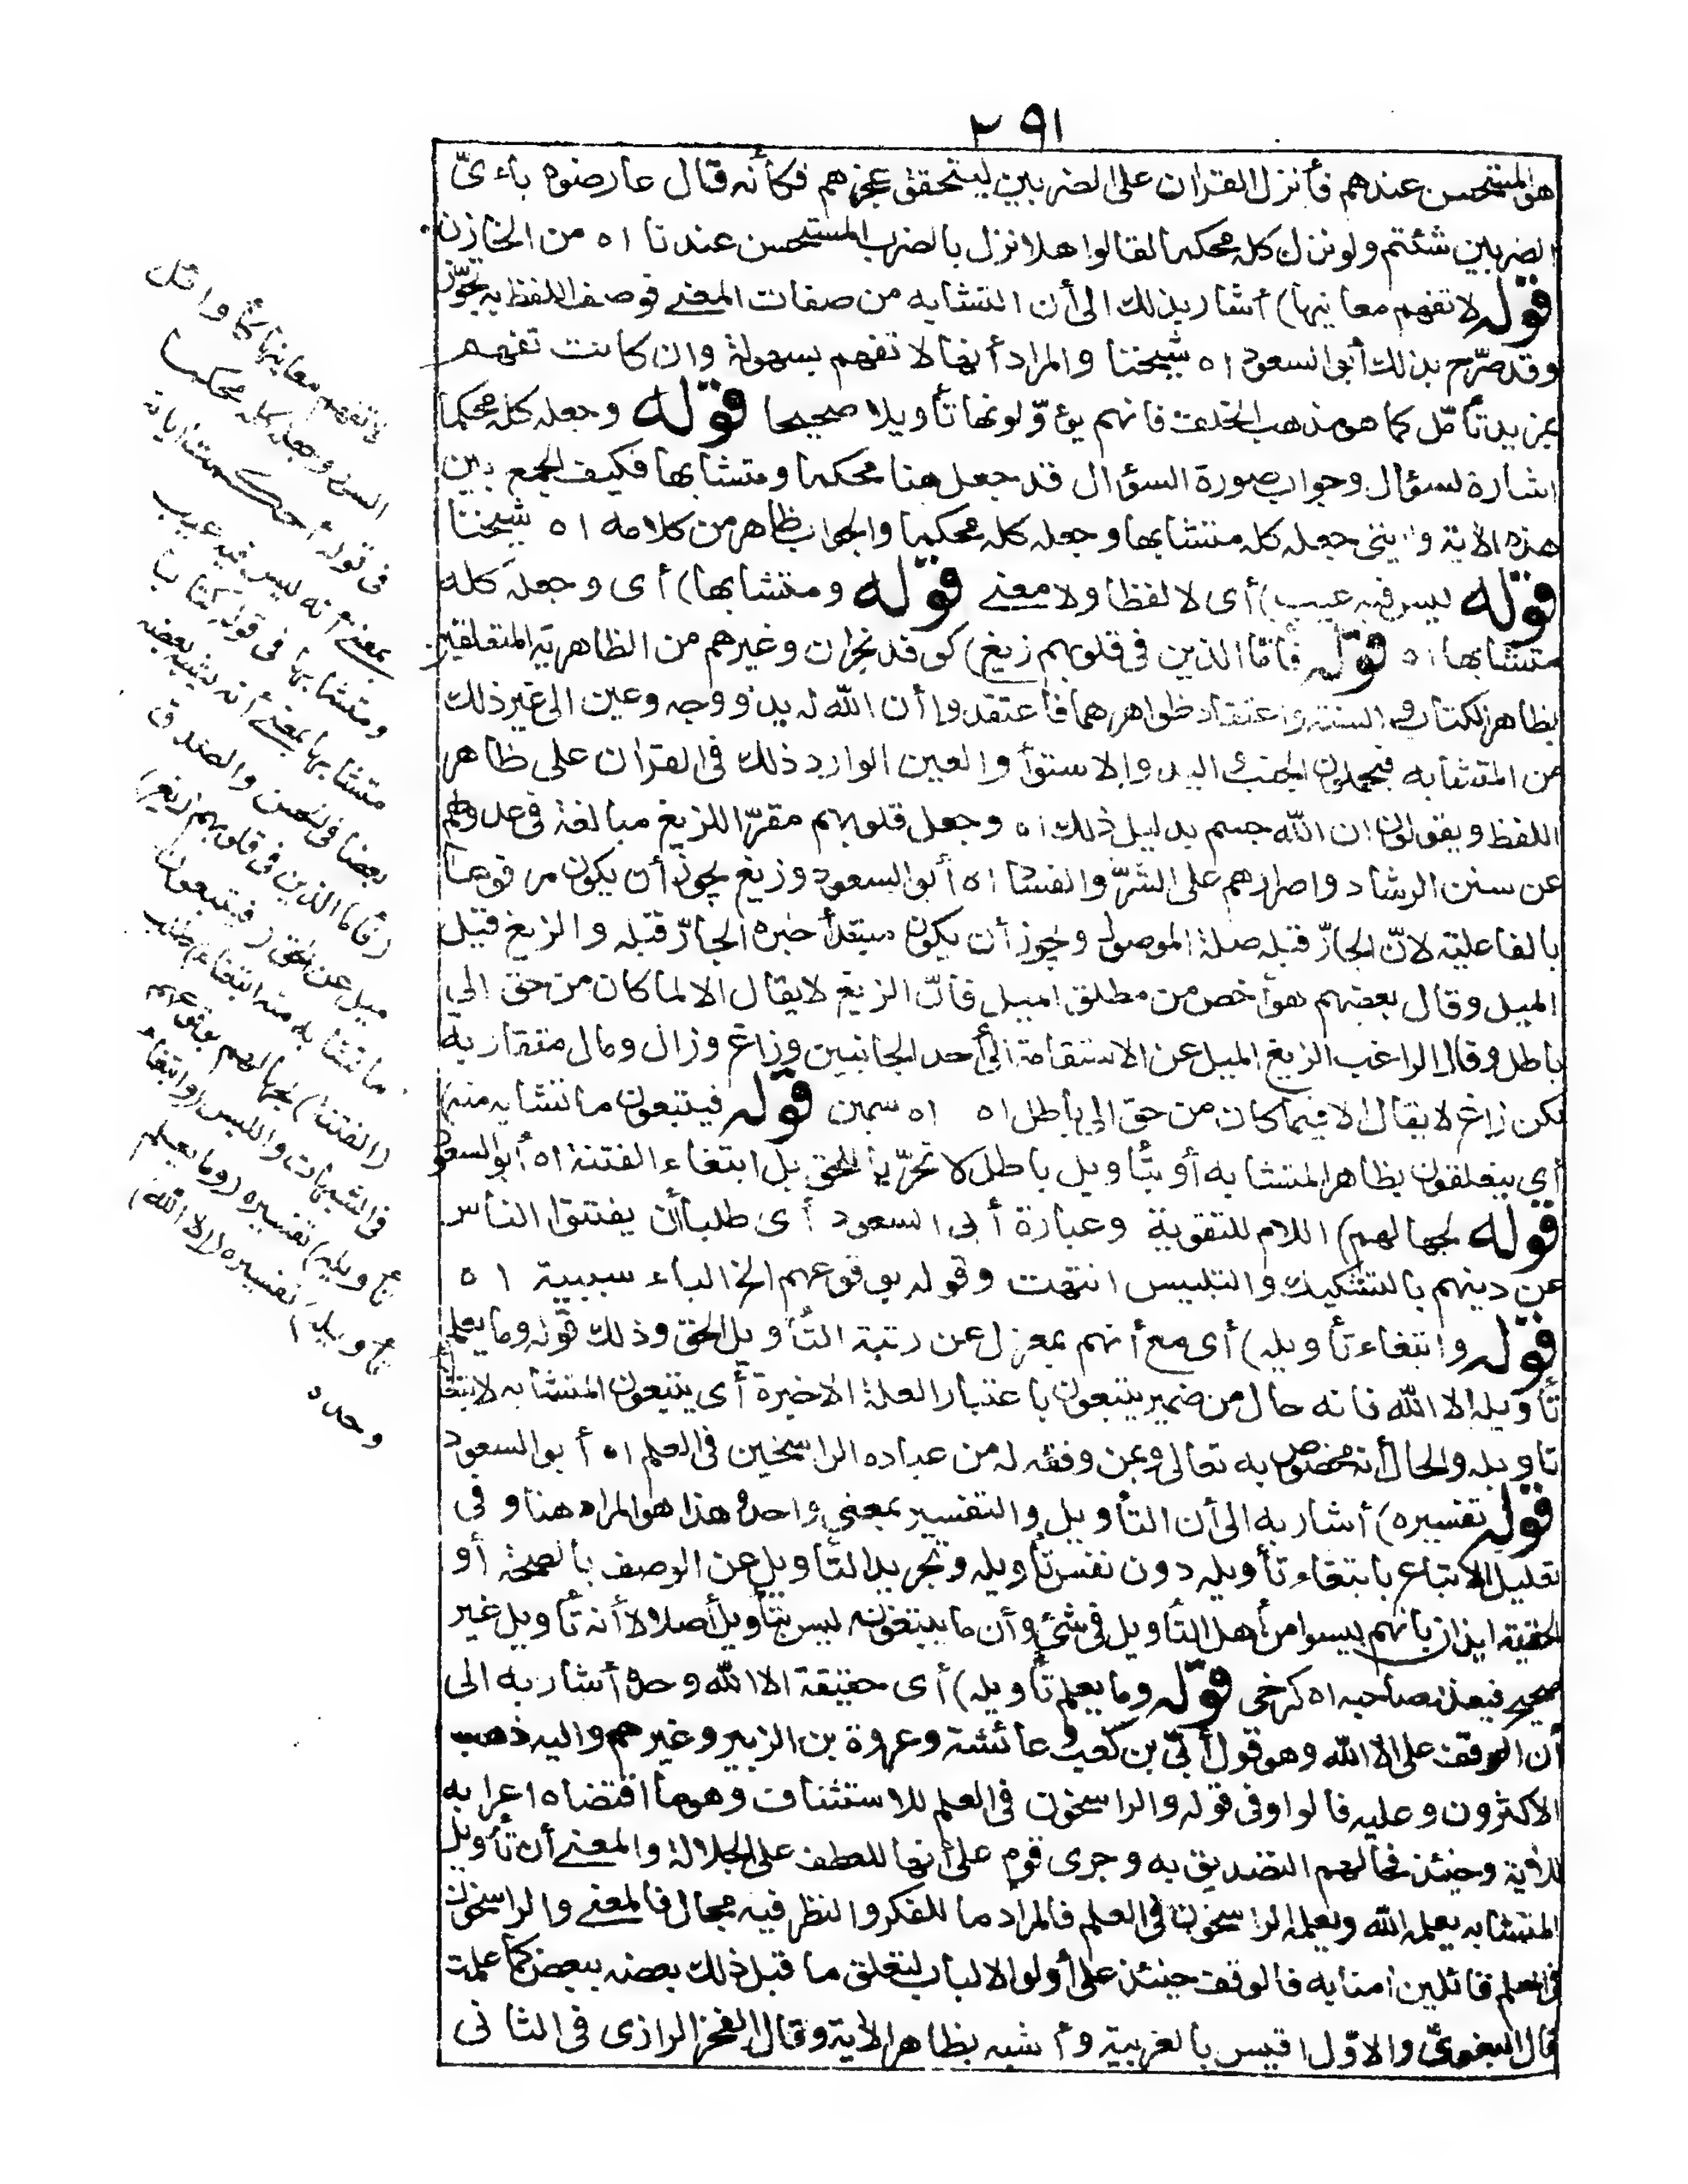 ٢٩١
هو المستحسن عندهم فأنزل القران على الضربين ليتحقق عجزهم فكأنه قال عارضوه بأى
الضربين شئتم ولو نزل كله محكما لقالوا هلا نزل بالضرب المستحسن عندنا اه من الخازن
قوله لا تفهم معانيها) أشار بذلك الى أن التشابه من صفات المعنى فوصف اللفظ به تجوّز
وقد صرّح بذلك أبو السعود اه شيخنا والمراد أنها لا تفهم بسهولة وان كانت تفهم
بمزيد تأمّل كما هو مذهب الخلف فانهم يؤوّلونها تأويلا صحيحا قوله وجعله كله محكما
اشارة لسؤال وجواب صورة السؤال قد جعل هنا محكما ومتشابها فكيف الجمع بين
هذه الاية و جعله كله متشابها وجعله كله محكما والجواب ظاهر من كلامه اه شيخنا
قوله ليس فيه عيب) أى لا لفظا ولا معنى قوله ومتشابها) أى وجعله كله
متشابها اه قوله فأمّا الذين فى قلوبهم زيغ) كوفد نجران وغيرهم من الظاهرية المتعلقين
بظاهر الكتاب والسنة واعتقاد ظواهرهما فاعتقدوا أن الله له يد ووجه وعين الى غير ذلك
من المتشابه فيحملون الجنب واليد والاستوأ والعين الوارد ذلك فى القران على ظاهر
اللفظ ويقولون ان الله جسم بدليل ذلك اه وجعل قلوبهم مقرّا للزيغ مبالغة فى عدولهم
عن سنن الرشاد واصرارهم على الشرّ والفساد اه أبو السعود وزيغ يجوز أن يكون مرفوعا
بالفاعلية لانّ الجارّ قبله صلة الموصول ويجوز أن يكون مبتدأ خبره الجارّ قبله والزيغ قيل
الميل وقال بعضهم هو أخص من مطلق الميل فانّ الزيغ لا يقال الا لما كان من حق الى
باطل وقال الراغب الزيغ الميل عن الاستقامة الى أحد الجانبين وزاغ وزال ومال متقاربة
لكن زاغ لا يقال الا فيما كان من حق الى باطل اه اه سمين قوله فيتبعون ما تشابه منه)
أى يتعلقون بظاهر المتشابه أو بتأويل باطل لا تحرّيا للحق بل ابتغاء الفتنة اه أبو السعود
قوله لجهالهم) اللام للتقوية وعبارة أبى السعود أى طلبا أن يفتنوا الناس
عن دينهم بالتشكيك والتلبيس انتهت وقوله بوقوعهم الخ الباء سببية اه
قوله وابتغاء تأويله) أى مع أنهم بمعزل عن رتبة التأويل الحق وذلك قوله وما يعلم
تأويله الا الله فانه حال من ضمير يتبعون باعتبار العلة الاخيرة أى يتبعون المتشابه لابتغاء
تاويله والحال أنه مخصوص به تعالى وبمن وفقه له من عباده الراسخين فى العلم اه أبو السعود
قوله تفسيره) أشار به الى أن التأويل والتفسير بمعنى واحد وهذا هو المراد هنا وفى
تعليل الاتباع بابتغاء تأويله دون نفس تأويله وتجريد التأويل عن الوصف بالصحة أو
الحقية ايذان بأنهم ليسوا من أهل التأويل فى شئ وأن ما يبتغونه ليس بتأويل أصلا لا أنه تأويل غير
صحيح فيعذر صاحبه اه كرخى قوله وما يعلم تأويله) أى حقيقة الا الله وحده أشار به الى
أن الوقف على الا الله وهو قول أبىّ بن كعب وعائشة وعروة بن الزبير وغيرهم واليه ذهب
الاكثرون وعليه فالواو فى قوله والراسخون فى العلم للاستئناف وهو ما اقتضاه اعرابه
للاية وحينئذ فمالهم التصديق به وجرى قوم على أنها للعطف على الجلالة والمعنى أن تأويل
المتشابه يعلمه الله ويعلمه الراسخون فى العلم فالمراد ما للفكر والنظر فيه مجال فالمعنى والراسخون
فى العلم قائلين امنا به فالوقف حينئذ على أولوا الالباب لتعلق ما قبل ذلك بعضه ببعض كما علمت
قال البغوىّ والاوّل اقيس بالعربية وأشبه بظاهر الاية وقال الفخر الرازى فى الثانى
لا تفهم معانيها كأوائل
السور وجعله كله محكما
فى قوله أحكمت اياته
بمعنى أنه ليس فيه عيب
ومتشابها فى قوله كتابا
متشابها بمعنى أنه يشبه بعضه
بعضا فى الحسن والصدق
(فأما الذين فى قلوبهم زيغ)
ميل عن الحق (فيتبعون
ما تشابه منه ابتغاء) طلب
(الفتنة) لجهالهم بوقوعهم
فى الشبهات واللبس (وابتغاء
تأويله) تفسيره (وما يعلم
تأويله) تفسيره (الا الله)
وحده